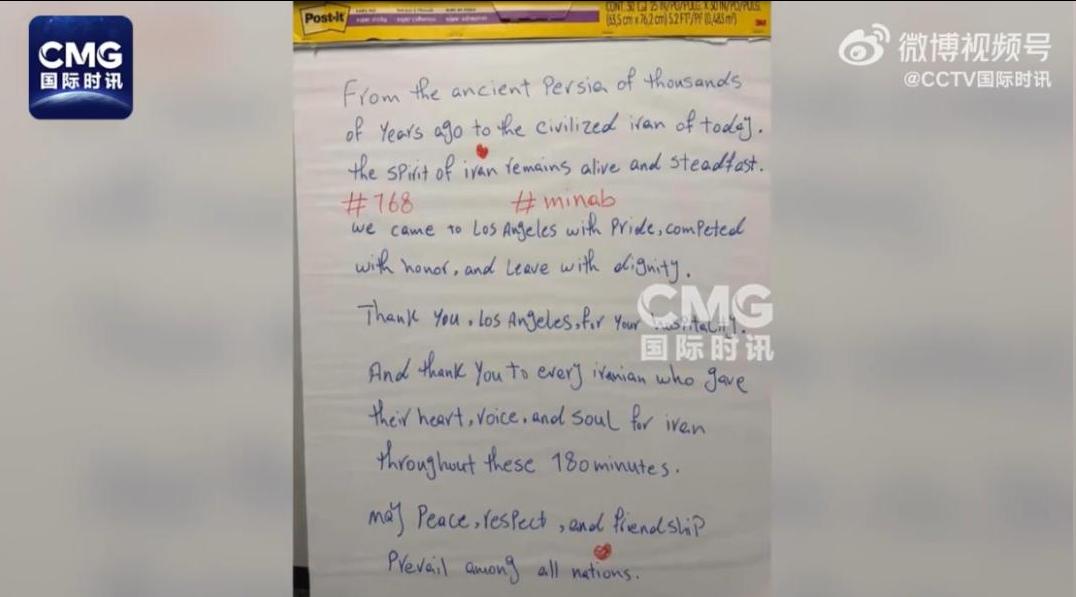 CMG
国际时讯
微博视频号
@CCTV国际时讯
Post-it
super sticky
3M
From the ancient Persia of thousands
of Years ago to the civilized iran of today.
the spirit of iran remains alive and steadfast.
#768 #minab
we came to Los Angeles with Pride, competed
with honor, and Leave with dignity.
Thank You, Los Angeles, for Your hospitality.
And thank You to every iranian who gave
their heart, voice, and soul for iran
throughout these 180 minutes.
may Peace, respect, and friendship
Prevail among all nations.
CMG
国际时讯